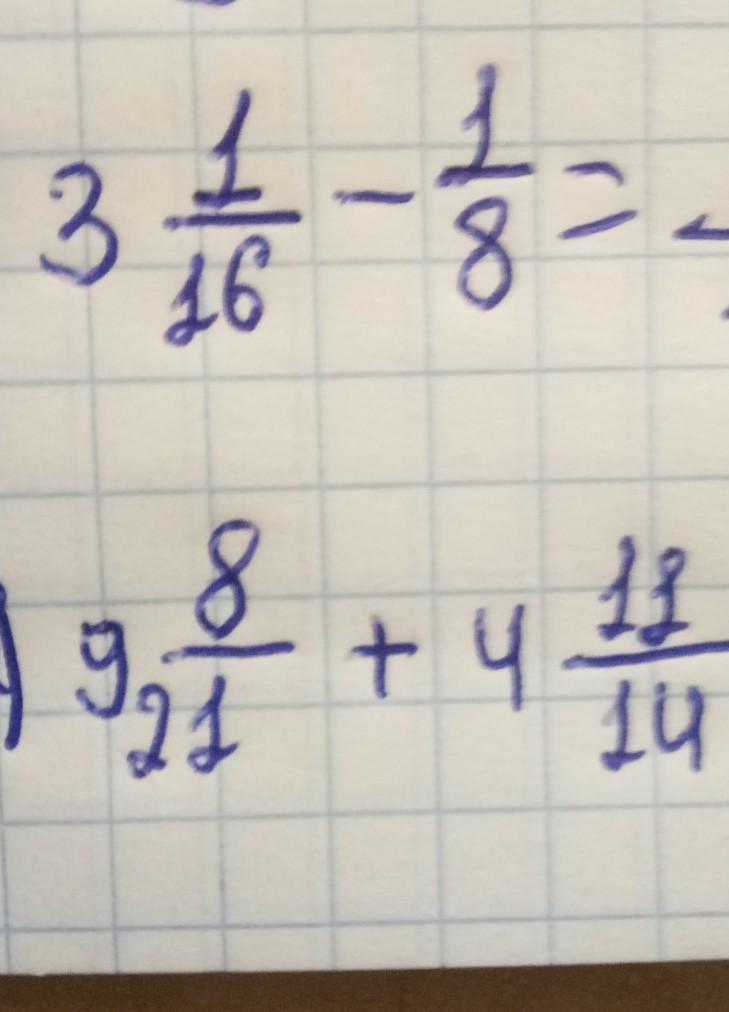 3 1/16 - 1/8 =
) 9 8/21 + 4 11/14